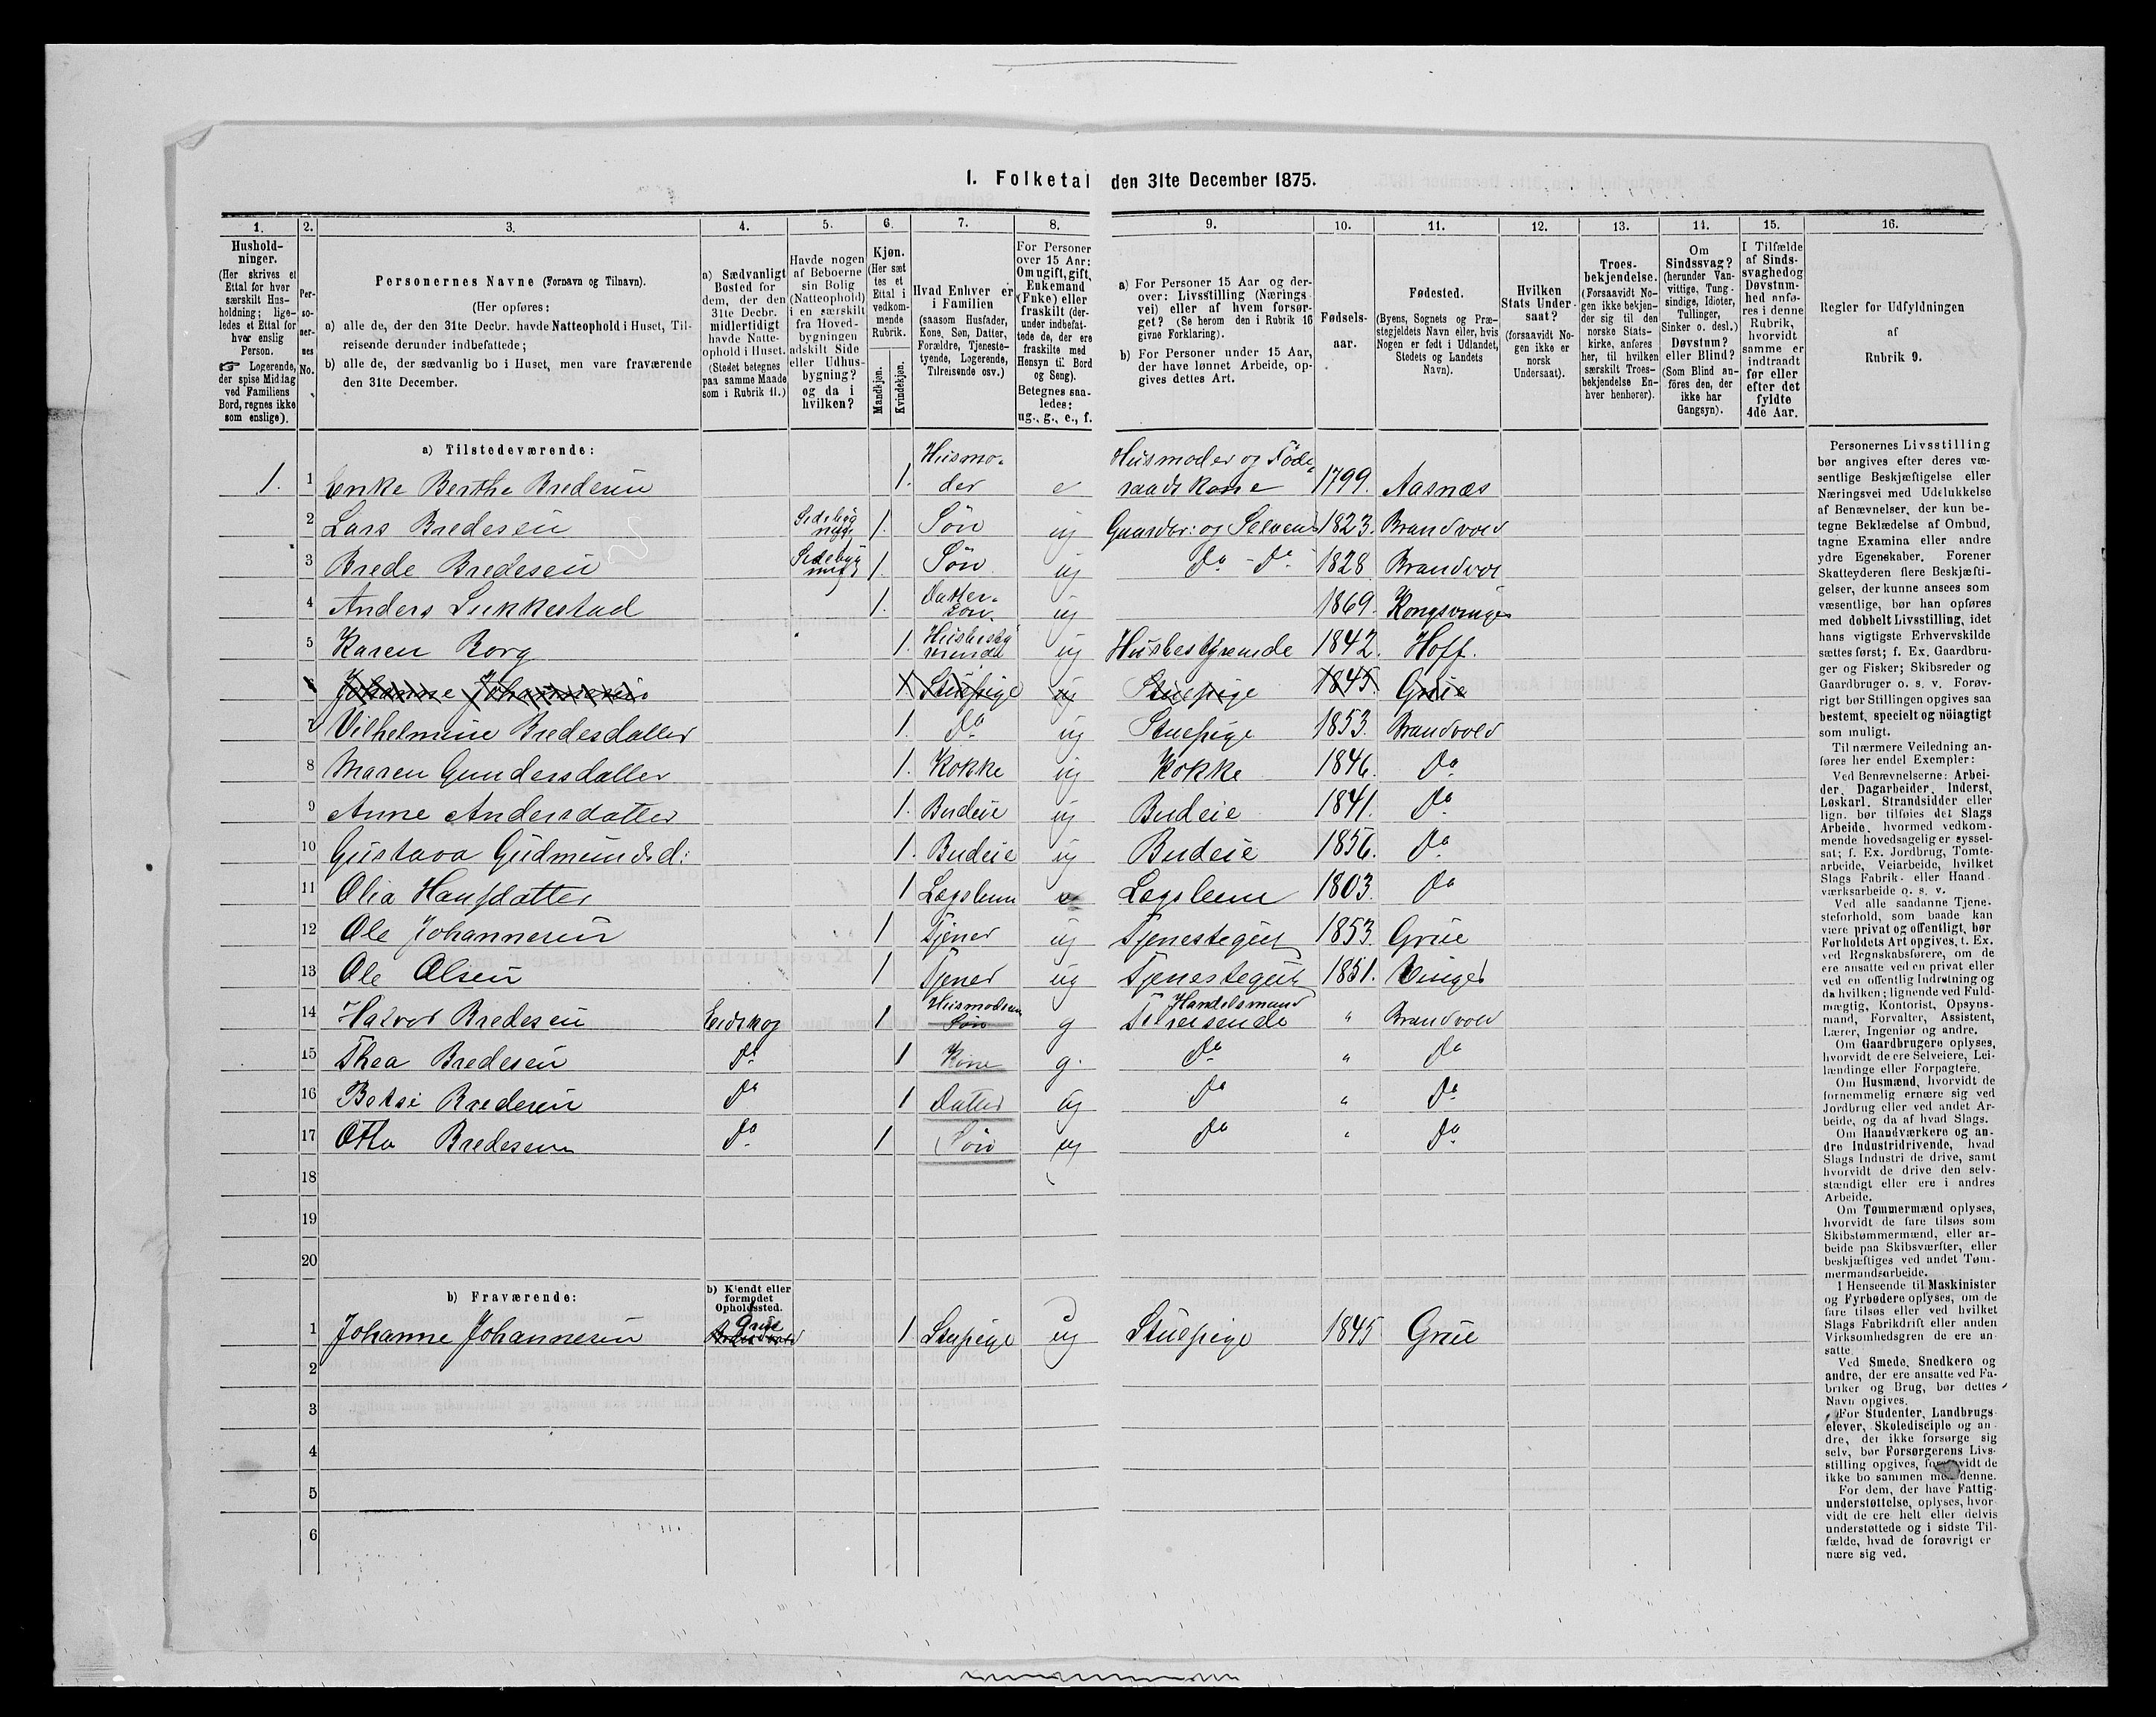 I. Folketal den 31te December 1875.
1. 2. 3. 4. 5. 6. 7. 8. 9. 10. 11. 12. 13. 14. 15. 16.
Hushold-
ninger.
(Her skrives et
Ettal for hver
særskilt Hus-
holdning; lige-
ledes et Ettal for
hver enslig
Person.
☞ Logerende,
der spise Middag
ved Familiens
Bord, regnes ikke
som enslige).
Per-
so-
ner-
nes
No.
Personernes Navne (Fornavn og Tilnavn).
(Her opføres:
a) alle de, der den 31te Decbr. havde Natteophold i Huset, Til-
reisende derunder indbefattede;
b) alle de, der sædvanlig bo i Huset, men vare fraværende
den 31te December.
a) Sædvanligt
Bosted for
dem, der den
31te Decbr.
midlertidigt
havde Natte-
ophold i Huset.
(Stedet betegnes
paa samme Maade
som i Rubrik 11.)
Havde nogen
af Beboerne
sin Bolig
(Natteophold)
i en særskilt
fra Hoved-
bygningen
adskilt Side
eller Udhus-
bygning?
og da i
hvilken?
Kjøn.
(Her sæt
tes et
Ettal i
vedkom-
mende
Rubrik.
Mandkjøn.
Kvindekjøn.
Hvad Enhver er
i Familien
(saasom Husfader,
Kone, Søn, Datter,
Forældre, Tjeneste-
tyende, Logerende,
Tilreisende osv.)
For Personer
over 15 Aar:
Om ugift, gift,
Enkemand
(Enke) eller
fraskilt (der-
under indbefat-
tede de, der ere
fraskilte med
Hensyn til Bord
og Seng).
Betegnes saa-
ledes:
ug., g., e., f.
a) For Personer 15 Aar og der-
over: Livsstilling (Nærings
vei) eller af hvem forsør-
get? (Se herom den i Rubrik 16
givne Forklaring).
b) For Personer under 15 Aar,
der have lønnet Arbeide, op-
gives dettes Art.
Fødsels-
aar.
Fødested.
(Byens, Sognets og Præ-
stegjeldets Navn eller, hvis
Nogen er født i Udlandet,
Stedets og Landets
Navn).
Hvilken
Stats Under-
saat?
(forsaavidt No-
gen ikke er
norsk
Undersaat).
Troes-
bekjendelse.
(Forsaavidt No-
gen ikke bekjen-
der sig til den
norske Stats-
kirke, anføres
her, til hvilken
særskilt Troes-
bekjendelse En-
hver henhører).
Om
Sindssvag?
(herunder Van-
vittige, Tung-
sindige, Idioter,
Tullinger,
Sinker o. desl.)
Døvstum?
eller Blind?
(Som Blind an-
föres den, der
ikke har
Gangsyn).
I Tilfælde
af Sinds-
svaghed og
Døvstum-
hed anfø-
res i denne
Rubrik,
hvorvidt
samme er
indtraadt
før eller
efter det
fyldte
4de Aar.
Regler for Udfyldningen
af
Rubrik 9.
a) Tilstedeværende:
1. 1 Enke Berthe Bredesen 1. Husmo-der e Husmoder og Föde-raads kone 1799. Aasnæs
2 Lars Bredesen Sidebyg 1. Sön ug Gaardbr: og Selveier 1823. Brandvold
3 Brede Bredesen Sidebyg 1. Sön ug Do - Do 1828 Brandvol
4 Anders Lukkestad 1. Datter-sön. ug 1869. Kongsvinger
5 Karen Borg 1. Husbesty-rende ug Husbestyrende 1842. Hoff.
6 Johanne Johannesen 1. Stuepige ug Stuepige 1845. Grue
7 Vilhelmine Bredesdatter 1. Do ug Stuepige 1853. Brandvold
8 Maren Gundersdatter 1. Kokke ug Kokke 1846. Do
9 Anne Andersdatter 1. Budeie ug Budeie 1841. Do
10 Gustava Gudmundsd: 1. Budeie ug Budeie 1856. Do
11 Olia Hansdatter 1 Lægslem Lægslem 1803. Do
12 Ole Johannesen 1 Tjener ug Tjenestegut 1853. Grue
13 Ole Olsen 1 Tjener ug Tjenestegut 1851. Vinger
14 Halvor Bredesen Eidskog 1 Husmoderen Sön g Handelsmand Tilreisende " Brandvold
15 Thea Bredesen Do 1 Kone g. Do " Do
16 Betsi Bredesen Do 1 Datter ug Do " Do
17 Otto Bredesen Do 1 Sön ug Do " Do
18
19
20
b) Fraværende:
b) Kjendt eller
formodet
Opholdssted.
1 Johanne Johannesen Grue 1 Stuepige ug Stuepige 1845 Grue
2
3
4
5
6
Personernes Livsstilling
bør angives efter deres væ-
sentlige Beskjæftigelse eller
Næringsvei med Udelukkelse
af Benævnelser, der kun be-
tegne Beklædelse af Ombud,
tagne Examina eller andre
ydre Egenskaber. Forener
Skatteyderen flere Beskjæfti-
gelser, der kunne ansees som
væsentlige, bør han opføres
med dobbelt Livsstilling, idet
hans vigtigste Erhvervskilde
sættes først; f. Ex. Gaardbru-
ger og Fisker; Skibsreder og
Gaardbruger o. s. v. Forøv-
rigt bør Stillingen opgives saa
bestemt, specielt og nöiagtigt
som muligt.
Til nærmere Veiledning an-
føres her endel Exempler:
Ved Benævnelserne: Arbei-
der, Dagarbeider, Inderst,
Løskarl, Strandsidder eller
lign. bør tilføies det Slags
Arbeide, hvormed vedkom-
mende hovedsagelig er syssel-
sat; f. Ex. Jordbrug, Tomte-
arbeide, Veiarbeide, hvilket
Slags Fabrik- eller Haand-
værksarbeide o. s. v.
Ved alle saadanne Tjene-
steforhold, som baade kan
være privat og offentligt, bør
Forholdets Art opgives, t. Ex.
ved Regnskabsførere, om de
ere ansatte ved en privat eller
ved en offentlig Indretning og
da hvilken; lignende ved Fuld-
mægtig, Kontorist, Opsyns-
mand, Forvalter, Assistent,
Lærer, Ingeniør og andre.
Om Gaardbrugere oplyses,
hvorvidt de ere Selveiere, Lei-
lændinge eller Forpagtere.
Om Husmænd, hvorvidt de
fornemmelig ernære sig ved
Jordbrug eller ved andet Ar-
beide, og da af hvad Slags.
Om Haandværkere og an-
dre Industridrivende, hvad
Slags Industri de drive, samt
hvorvidt de drive den selv-
stændigt eller ere i andres
Arbeide.
Om Tømmermænd oplyses,
hvorvidt de fare tilsøs som
Skibstømmermænd, eller ar-
beide paa Skibsværfter, eller
beskjæftiges ved andet Tøm-
mermandsarbeide.
I Henseende til Maskinister
og Fyrbødere oplyses, om de
fare tilsøs eller ved hvilket
Slags Fabrikdrift eller anden
Virksomhedsgren de ere an-
satte.
Ved Smede, Snedkere og
andre, der ere ansatte ved Fa-
briker og Brug, bør dettes
Navn opgives.
For Studenter, Landbrugs-
elever, Skoledisciple og an-
dre, der ikke forsørge sig
selv, bør Forsørgerens Livs-
stilling opgives, forsaavidt de
ikke bo sammen med denne.
For dem, der have Fattig-
understøttelse, oplyses, hvor-
vidt de ere helt eller delvis
understøttede og i sidste Til-
fælde, hvad de forøvrigt er
nære sig ved.